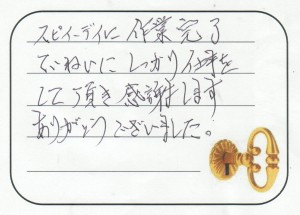 スピーディに作業完了
ていねいにしっかり仕事を
して頂き感謝します
ありがとうございました。